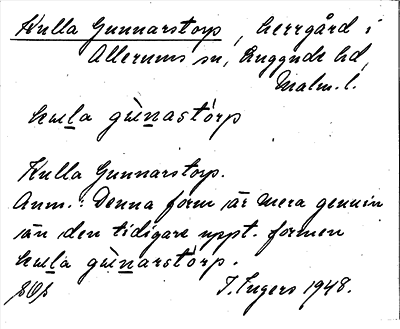 Kulla Gunnarstorp, herrgård i
Allerums sn, Luggude hd,
Malm. l.
kula gùnastórp
Kulla Gunnarstorp.
Anm.: Denna form är mera genuin
än den tidigare uppt. formen
kula gùnarstórp.
I. Ingers 1948.